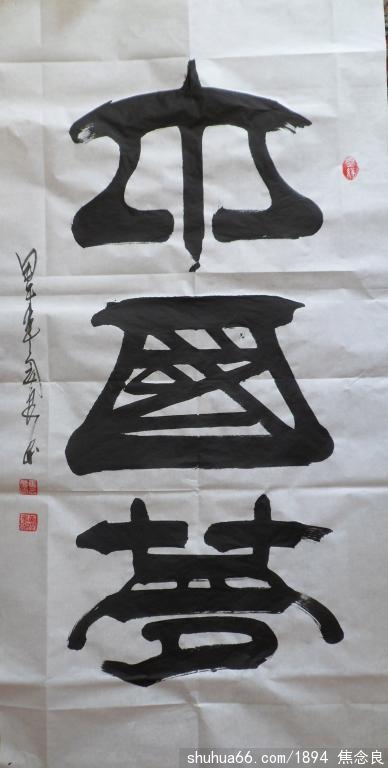 中國夢
甲午年
shuhua66.com/1894 焦念良